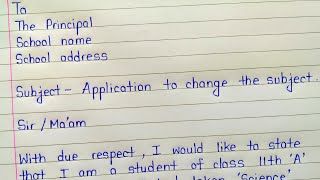 To
The Principal
School name
School address
Subject - Application to change the subject.
Sir / Ma'am
With due respect, I would like to state
that I am a student of class 11th 'A'
taken 'Science'